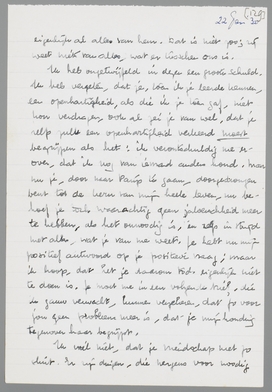 [129]
22 Jan 30
eigenlijk al alles van hem. Dat is niet
weet niets van alles, wat er tusschen ons is.
Ik heb ongetwijfeld in dezen een groote schuld.
Ik heb vergeten, dat je, toen ik je leerde kennen,
een openhartigheid, als die ik je toen gaf, niet
kon verdragen, ook al zei je van wel, dat je
zelfs juist een openhartigheid verkeerd moest
begrijpen als het! ik verontschuldig me er-
over, dat ik nog van iemand anders hond. Maar
nu je, door naar Parijs te gaan, doorgedrongen
bent tot de kern van mijn heele leven, nu be-
hoef je toch waarachtig geen jaloerschheid meer
te hebben, als het onnoodig is, en zelfs in strijd
met alles, wat je van me weet. Je hebt nu mijn
positief antwoord op je positieve vraag; maar
ik hoop, dat het je daarom toch eigenlijk niet
te doen is. Je moet me in een volgenden brief, die
ik gauw verwacht, kunnen verzekeren, dat zo voor
jou geen probleem meer is, dat je mijn houding
tegenover haar begrijpt.
Ik voel niet, dat je vriendschap met jo
sluit. In mijn dingen, die nergens voor noodig